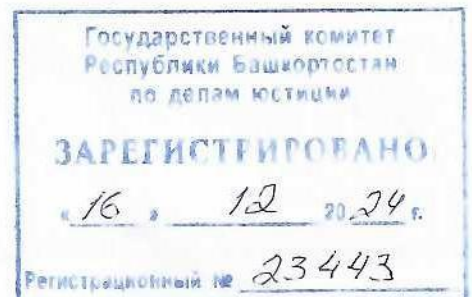 Государственный комитет
Республики Башкортостан
по делам юстиции
ЗАРЕГИСТРИРОВАНО
« 16 » 12 20 24 г.
Регистрационный № 23443